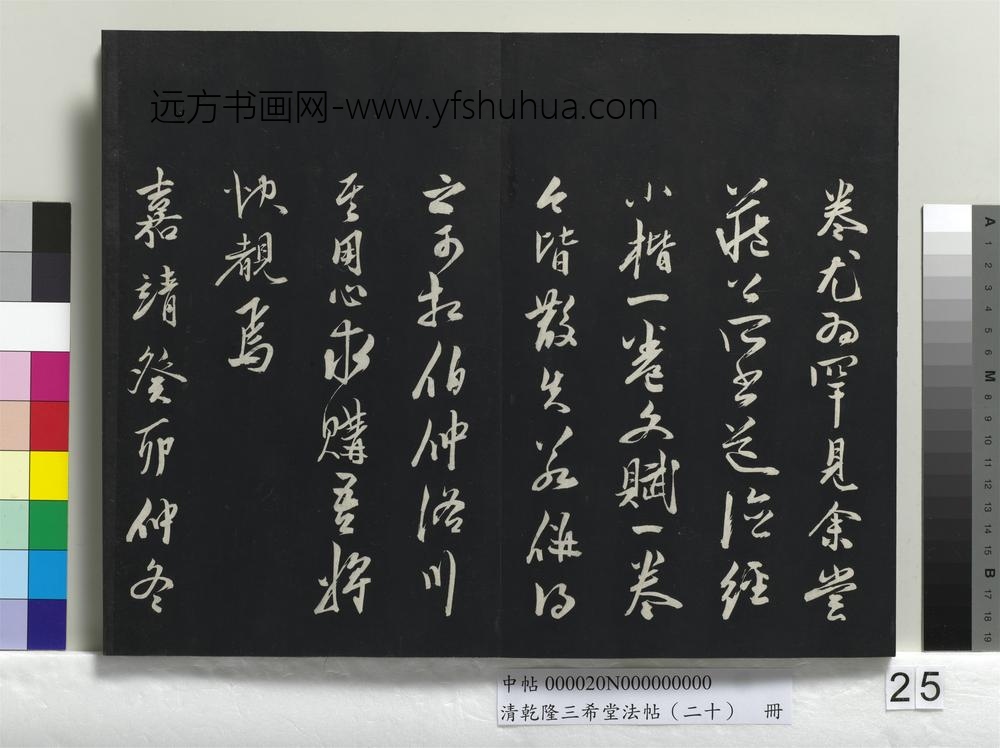 远方书画网-www.yfshuhua.com
卷尤為罕見余嘗
藏公所書道德經
小楷一卷文賦一卷
今皆散失若併得
之可相伯仲洛川
其用心求購吾將
快覩焉
嘉靖癸卯仲冬
中帖 000020N000000000
清乾隆三希堂法帖（二十） 冊
25
A 1 2 3 4 5 6 M 8 9 10 11 12 13 14 15 B 17 18 19